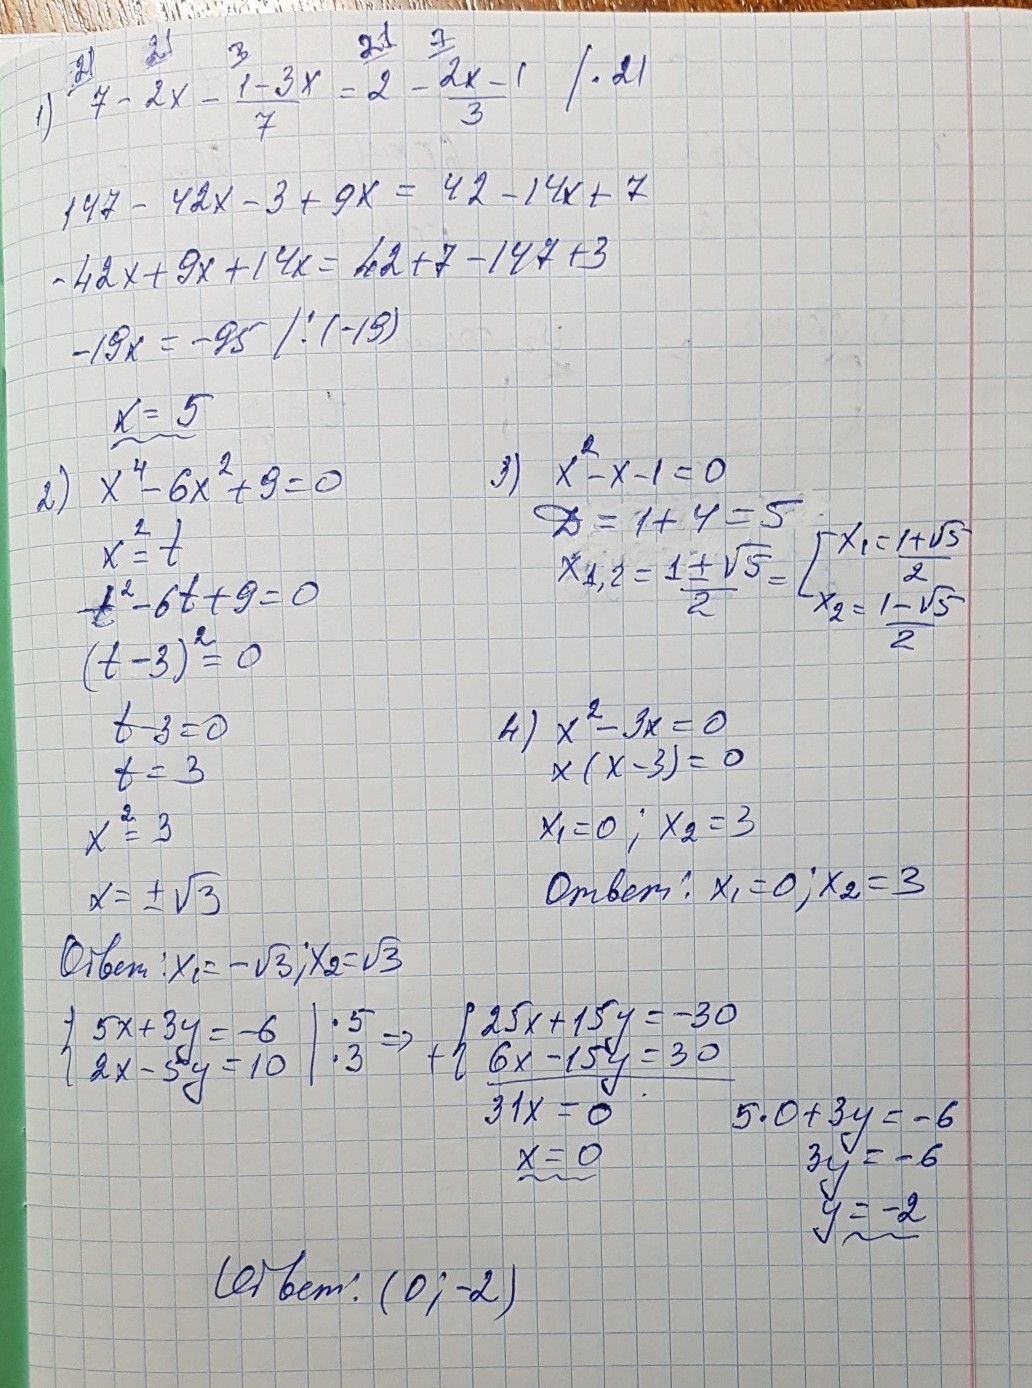 21 21 3 21 7
1) 7 - 2x - (1-3x)/7 = 2 - (2x-1)/3 / ·21
147 - 42x - 3 + 9x = 42 - 14x + 7
-42x + 9x + 14x = 42 + 7 - 147 + 3
-19x = -95 / : (-19)
x = 5
2) x⁴ - 6x² + 9 = 0
x² = t
t² - 6t + 9 = 0
(t - 3)² = 0
t - 3 = 0
t = 3
x² = 3
x = ±√3
Ответ: x₁ = -√3; x₂ = √3
3) x² - x - 1 = 0
D = 1 + 4 = 5
x₁,₂ = (1 ± √5)/2 = [ x₁ = (1+√5)/2
x₂ = (1-√5)/2
4) x² - 3x = 0
x(x - 3) = 0
x₁ = 0; x₂ = 3
Ответ: x₁ = 0; x₂ = 3
{ 5x + 3y = -6 | ·5 => + { 25x + 15y = -30
2x - 5y = 10 | ·3 6x - 15y = 30
31x = 0
x = 0
5·0 + 3y = -6
3y = -6
y = -2
Ответ: (0; -2)